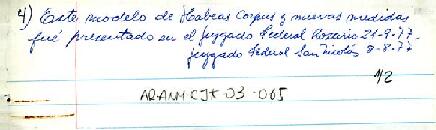 4) Este modelo de Habeas Corpus y nuevas medidas
fué presentado en el juzgado Federal Rosario 21-9-77-
juzgado Federal San Nicolás 9-8-77
1/2
ADANMCJT-03-005